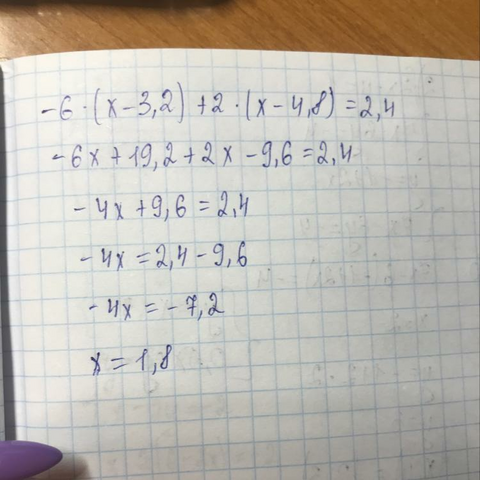 -6 · (x-3,2) +2 · (x-4,8) =2,4
-6x+19,2+2x-9,6=2,4
-4x+9,6=2,4
-4x=2,4-9,6
-4x=-7,2
x=1,8